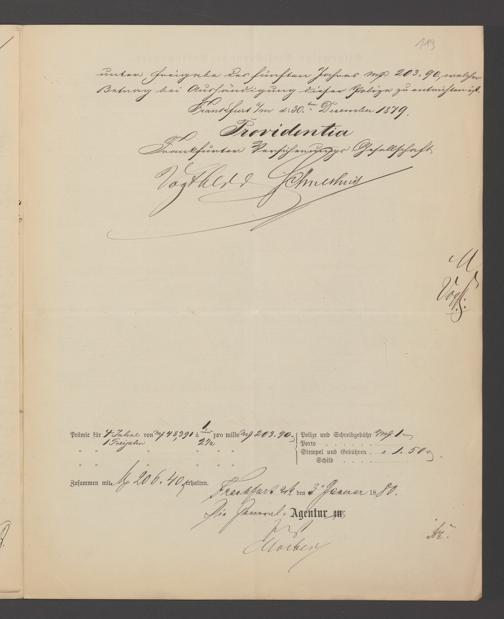 113
unter Freigabe des fünften Jahres Mk 203.90, welcher
Betrag bei Aushändigung dieser Polize zu entrichten ist.
Frankfurt a/m d. 30.ten December 1879.
Providentia
Frankfurter Versicherungs Gesellschaft.
Prämie für 4 Jahre von Mk 45,391 à 1 pro mille Mk 203.90.
1 Freijahr
Polize und Schreibgebühr Mk 1
Porto
Stempel und Gebühren 1.50
Schild
Zusammen mit M 206.40 erhalten.
Frankfurt a/M den 3 Januar 1880.
Die General-Agentur